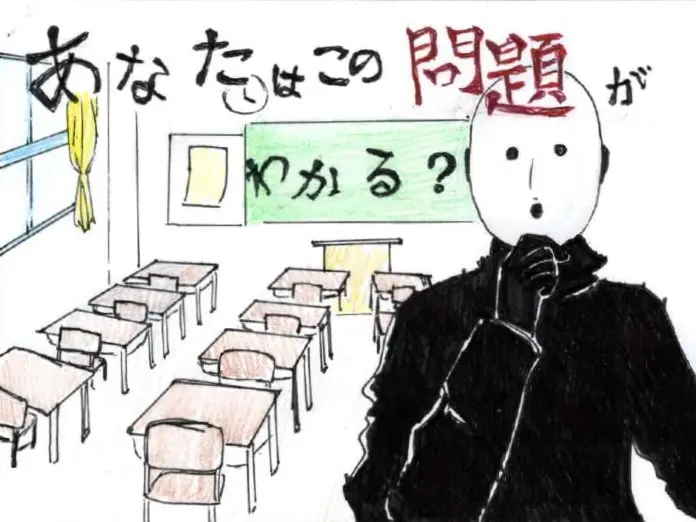 あなたはこの問題が
わかる?